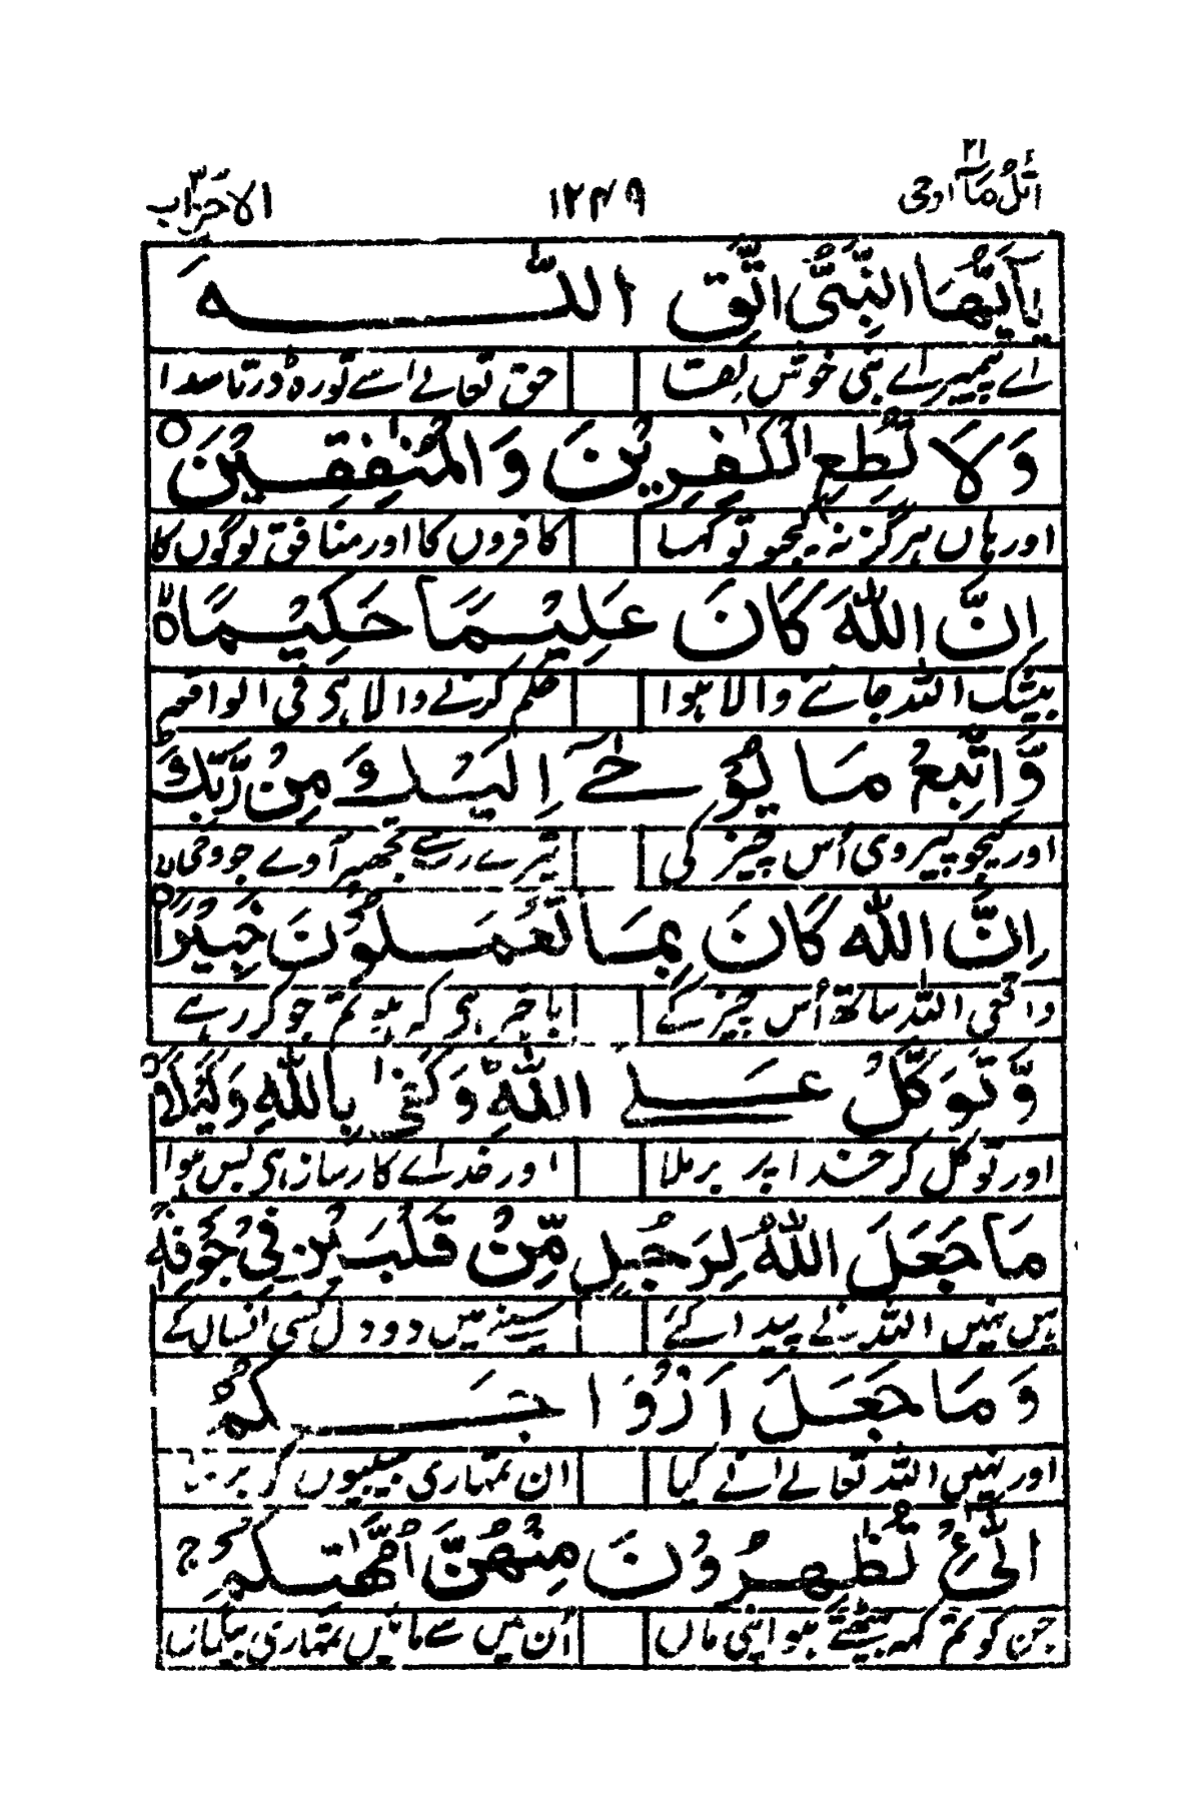 اُتْلُ مَآ اوحی ۲۱ ۱۲۴۹ الاحزاب ۳۳
يٰٓاَيُّهَا النَّبِىُّ اتَّقِ اللّٰهَ
اے پیمبر اے نبی خوش لقب حق تعالے اسے تو رہ ڈرتا صدا
وَلَا تُطِعِ الْكٰفِرِيْنَ وَالْمُنٰفِقِيْنَ ○
اور ہاں ہرگز نہ کیجو تو کہا کافروں کا اور منافق لوگوں کا
اِنَّ اللّٰهَ كَانَ عَلِيْمًا حَكِيْمًا ○
بیشک اللہ جاننے والا ہوا حکم کرنے والا ہی فی الواقعہ
وَّاتَّبِعْ مَا يُوْحٰٓى اِلَيْكَ مِنْ رَّبِّكَ
اور کیجو پیروی اُس چیز کی تیرے رب سے تجھپر آوے جو وحی
اِنَّ اللّٰهَ كَانَ بِمَا تَعْمَلُوْنَ خَبِيْرًا ○
واقعی اللہ ساتھ اُس چیز کے باخبر ہی کہ ہو تم جو کر رہے
وَّتَوَكَّلْ عَلَى اللّٰهِ وَكَفٰى بِاللّٰهِ وَكِيْلًا ○
اور توکل کر خدا پر برملا اور خدا ے کارساز ہی بس ہوا
مَا جَعَلَ اللّٰهُ لِرَجُلٍ مِّنْ قَلْبَيْنِ فِىْ جَوْفِهٖ
پس نہیں اللہ نے پیدا کئے سینہ میں دو دل کسی انسان کے
وَمَا جَعَلَ اَزْوَاجَكُمُ
اور نہیں اللہ تعالے انے کیا ان تمہاری بیبیوں کو
الّٰـِٔىْ تُظٰهِرُوْنَ مِنْهُنَّ اُمَّهٰتِكُمْ ج
جن کو تم کہہ بیٹھتے ہو اپنی ماں اُن میں سے مائیں تمہاری